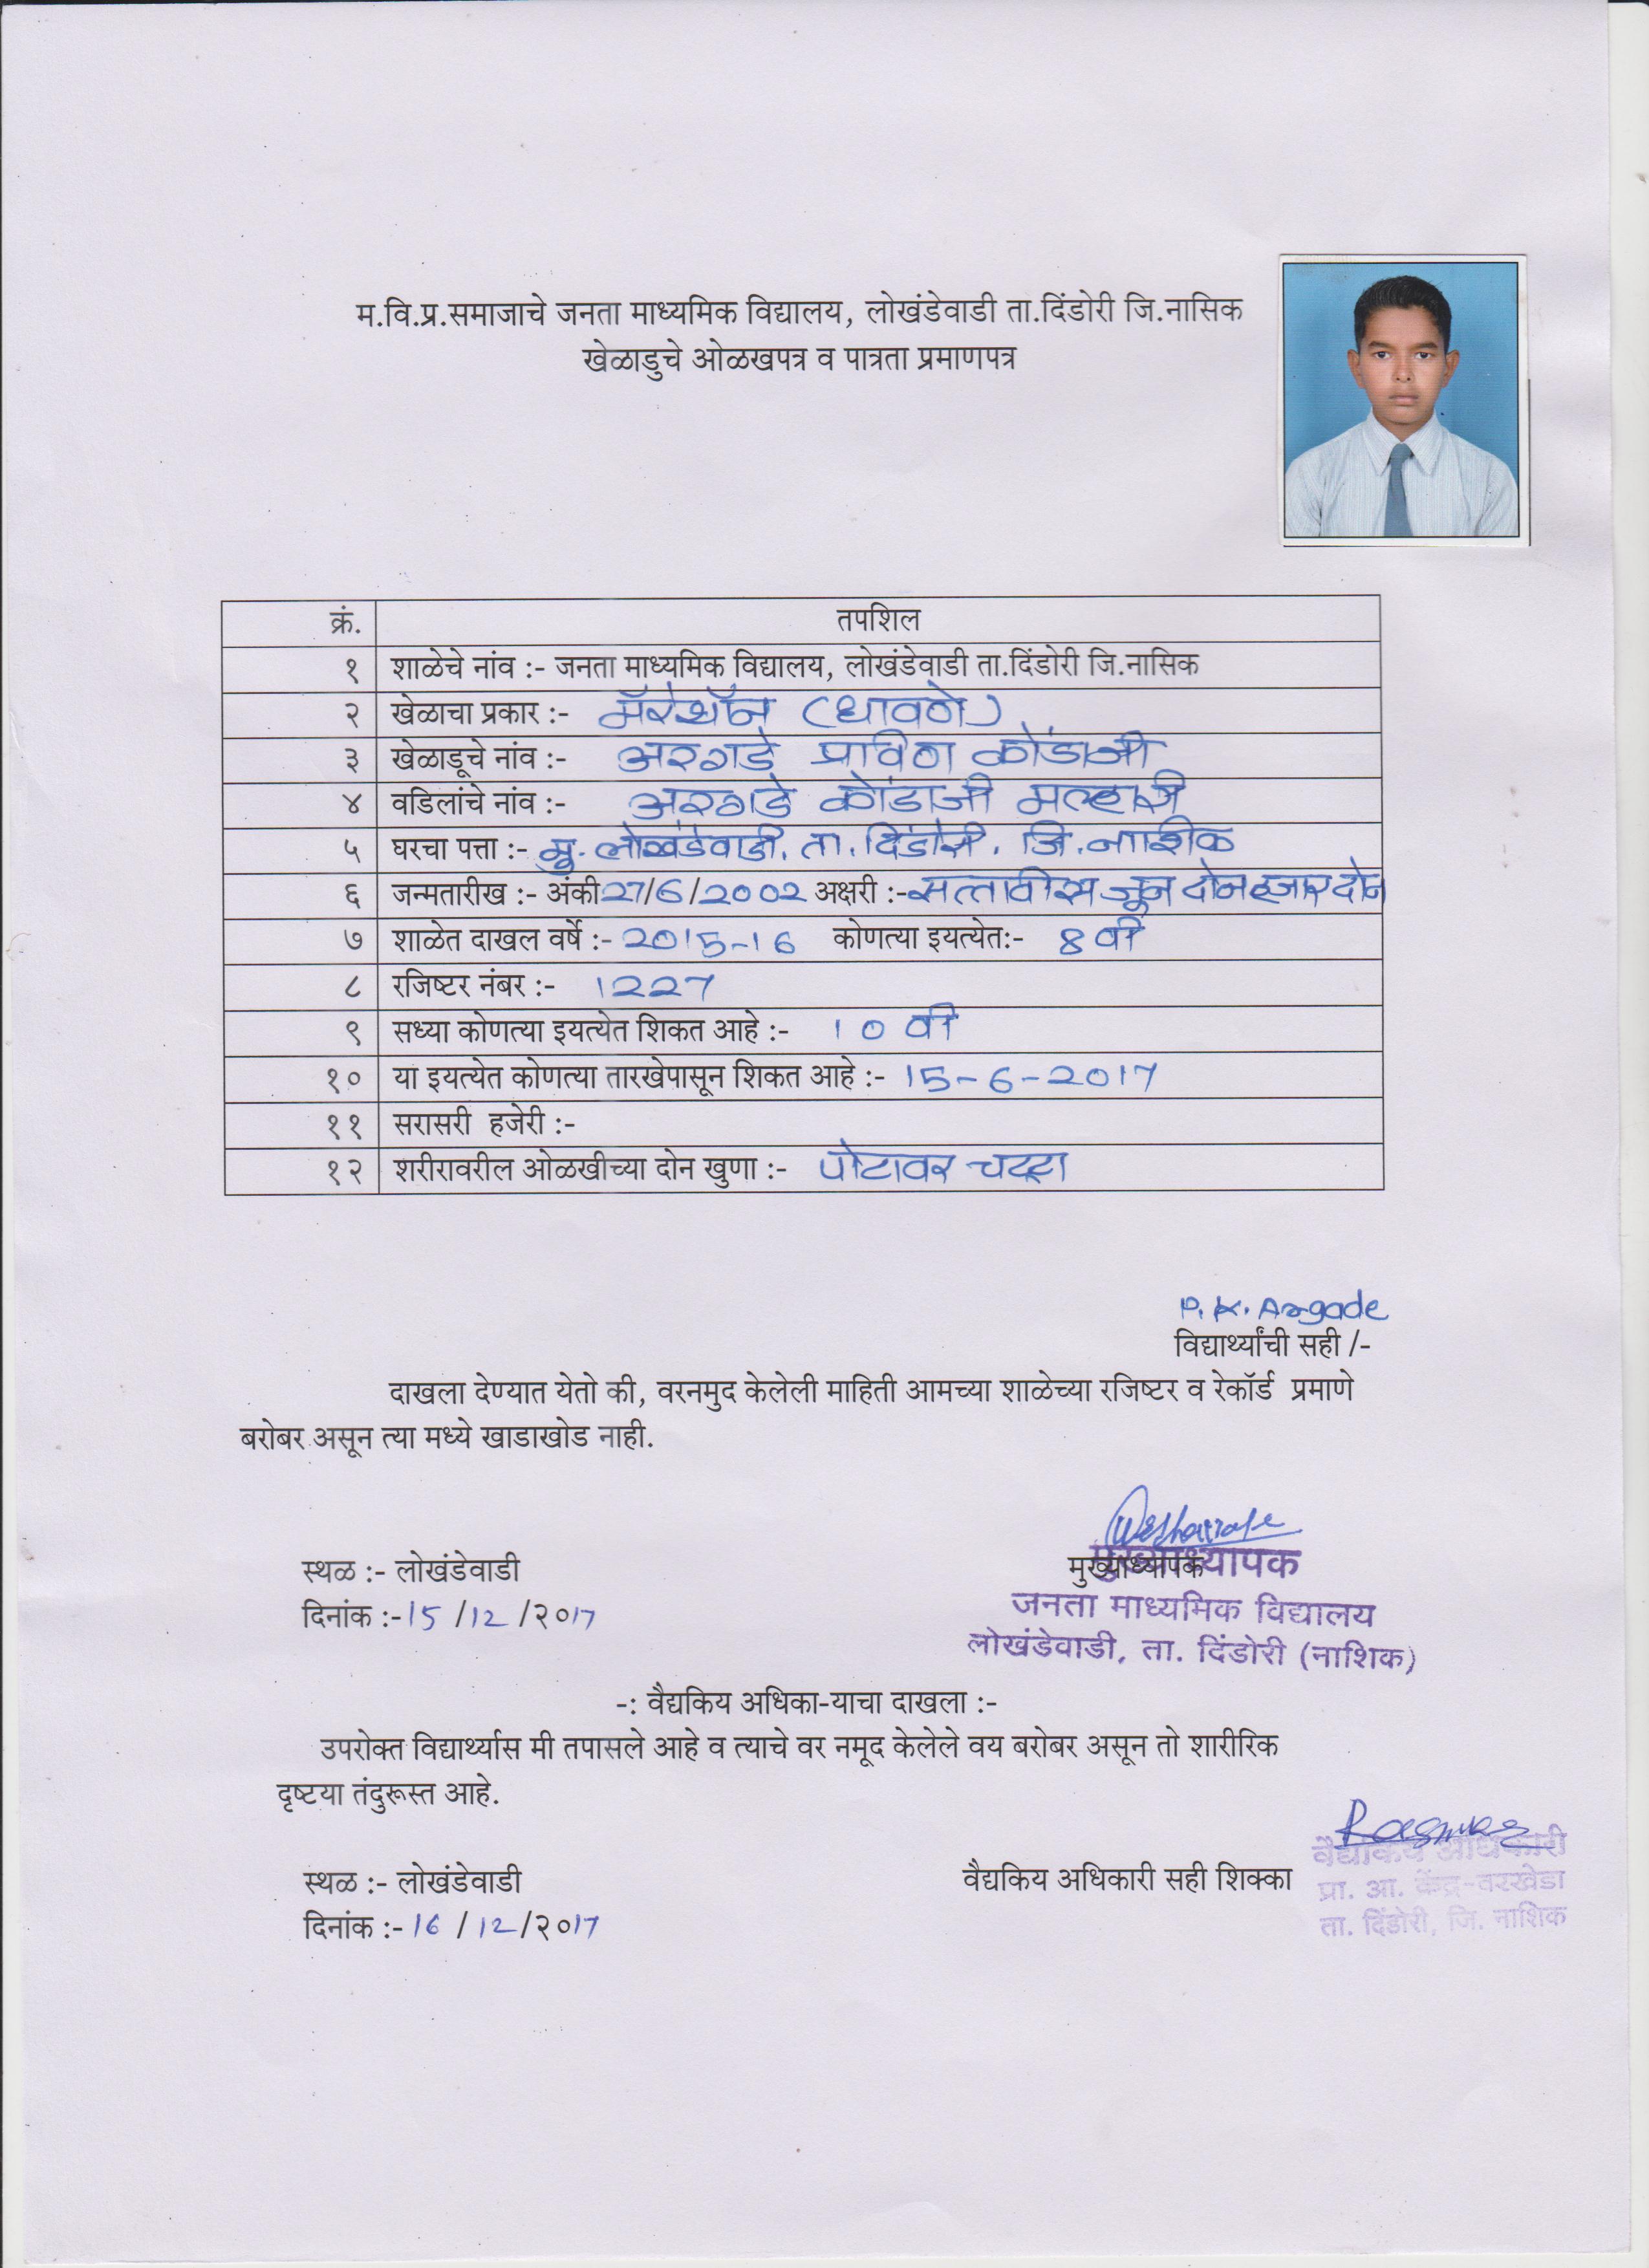 म.वि.प्र.समाजाचे जनता माध्यमिक विद्यालय, लोखंडेवाडी ता.दिंडोरी जि.नासिक
खेळाडुचे ओळखपत्र व पात्रता प्रमाणपत्र
क्रं. तपशिल
१ शाळेचे नांव :- जनता माध्यमिक विद्यालय, लोखंडेवाडी ता.दिंडोरी जि.नासिक
२ खेळाचा प्रकार :- मॅरेथॉन (धावणे)
३ खेळाडूचे नांव :- अरगडे प्राविण कोंडाजी
४ वडिलांचे नांव :- अरगडे कोंडाजी मल्हारी
५ घरचा पत्ता :- मु. लोखंडेवाडी. ता. दिंडोरी. जि. नाशिक
६ जन्मतारीख :- अंकी 27/6/2002 अक्षरी :- सत्तावीस जून दोन हजार दोन
७ शाळेत दाखल वर्षे :- 2015-16 कोणत्या इयत्येत:- 8 वी
८ रजिष्टर नंबर :- 1227
९ सध्या कोणत्या इयत्येत शिकत आहे :- 10 वी
१० या इयत्येत कोणत्या तारखेपासून शिकत आहे :- 15-6-2017
११ सरासरी हजेरी :-
१२ शरीरावरील ओळखीच्या दोन खुणा :- पोटावर चट्टा
P. K. Argade
विद्यार्थ्यांची सही /-
दाखला देण्यात येतो की, वरनमुद केलेली माहिती आमच्या शाळेच्या रजिष्टर व रेकॉर्ड प्रमाणे
बरोबर असून त्या मध्ये खाडाखोड नाही.
स्थळ :- लोखंडेवाडी मुख्याध्यापक मुख्याध्यापक
जनता माध्यमिक विद्यालय
दिनांक :- 15 /12 /२०17
लोखंडेवाडी, ता. दिंडोरी (नाशिक)
-: वैद्यकिय अधिका-याचा दाखला :-
उपरोक्त विद्यार्थ्यास मी तपासले आहे व त्याचे वर नमूद केलेले वय बरोबर असून तो शारीरिक
दृष्टया तंदुरूस्त आहे.
वैद्यकिय अधिकारी
स्थळ :- लोखंडेवाडी वैद्यकिय अधिकारी सही शिक्का प्रा. आ. केंद्र-वरखेडा
दिनांक :- 16 / 12 /२०17 ता. दिंडोरी, जि. नाशिक